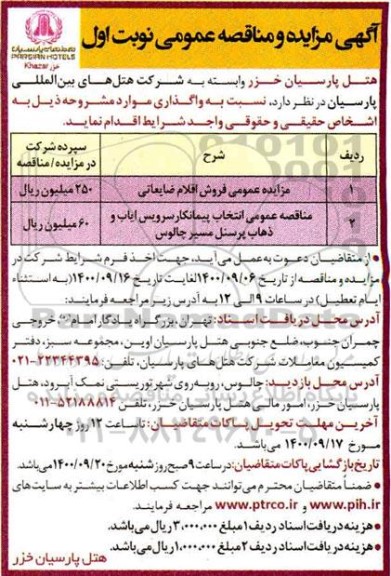 آگهی مزایده و مناقصه عمومی نوبت اول
هتل‌های پارسیان
PARSIAN HOTELS
خزر Khazar
هتل پارسیان خزر وابسته به شرکت هتل‌های بین‌المللی
پارسیان در نظر دارد، نسبت به واگذاری موارد مشروحه ذیل به
اشخاص حقیقی و حقوقی واجد شرایط اقدام نماید.
ردیف شرح سپرده شرکت در مزایده/ مناقصه
۱ مزایده عمومی فروش اقلام ضایعاتی ۲۵۰ میلیون ریال
۲ مناقصه عمومی انتخاب پیمانکار سرویس ایاب و ذهاب پرسنل مسیر چالوس ۶۰ میلیون ریال
• از متقاضیان دعوت به عمل می آید، جهت اخذ فرم شرایط شرکت در
مزایده و مناقصه از تاریخ ۱۴۰۰/۰۹/۰۶ لغایت تاریخ ۱۴۰۰/۰۹/۱۶ (به استثناء
ایام تعطیل) در ساعات ۹ الی ۱۲ به آدرس زیر مراجعه فرمایند:
آدرس محل دریافت اسناد: تهران، بزرگراه یادگار امام"ره" خروجی
چمران جنوب، ضلع جنوبی هتل پارسیان اوین، مجموعه سبز، دفتر
کمیسیون معاملات شرکت هتل‌های پارسیان، تلفن: ۲۲۳۴۴۳۹۵-۰۲۱
آدرس محل بازدید: چالوس، روبه‌روی شهر توریستی نمک آبرود، هتل
پارسیان خزر، امور مالی هتل پارسیان خزر، تلفن ۵۲۱۸۸۸۱۴-۰۱۱
آخرین مهلت تحویل پاکات متقاضیان: تا ساعت ۱۲ روز چهارشنبه
مورخ ۱۴۰۰/۰۹/۱۷ می‌باشد.
تاریخ بازگشایی پاکات متقاضیان: در ساعت ۹ صبح روز شنبه مورخ ۱۴۰۰/۰۹/۲۰ می‌باشد.
• ضمناً متقاضیان محترم می‌توانند جهت کسب اطلاعات بیشتر به سایت‌های
www.pih.ir و www.ptrco.ir مراجعه فرمایند.
• هزینه دریافت اسناد ردیف ۱ مبلغ ۳,۰۰۰,۰۰۰ ریال می‌باشد.
• هزینه دریافت اسناد ردیف ۲ مبلغ ۱,۰۰۰,۰۰۰ ریال می‌باشد.
هتل پارسیان خزر